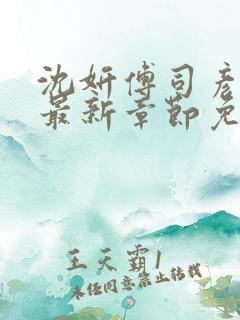 沈妍傅司彦
最新章节免
王天霸1
未经同意禁止转载